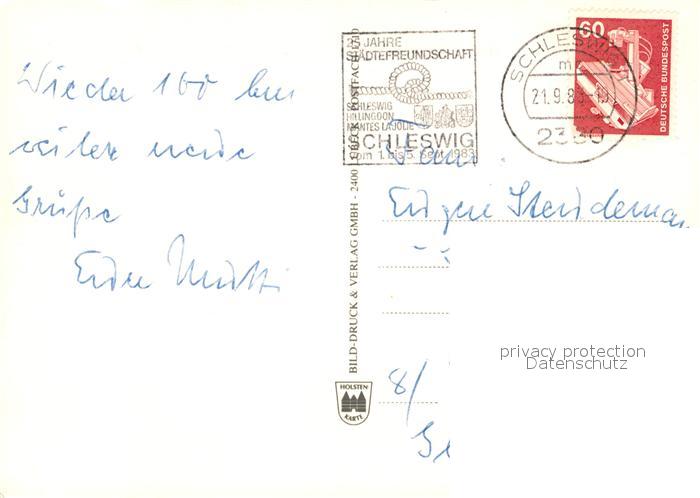 Wieder 100 km
weiter meine
Grüße
Eure Mutti
25 JAHRE
STÄDTEFREUNDSCHAFT
SCHLESWIG
HILLINGDON
MANTES LA JOLIE
SCHLESWIG
vom 1. bis 5. Sept. 1983
SCHLESWIG
m
21.9.83
2380
60
DEUTSCHE BUNDESPOST
BILD-DRUCK & VERLAG GMBH - 2400 LÜBECK - POSTFACH
Fam.
8/
privacy protection
Datenschutz
HOLSTEN
KARTE